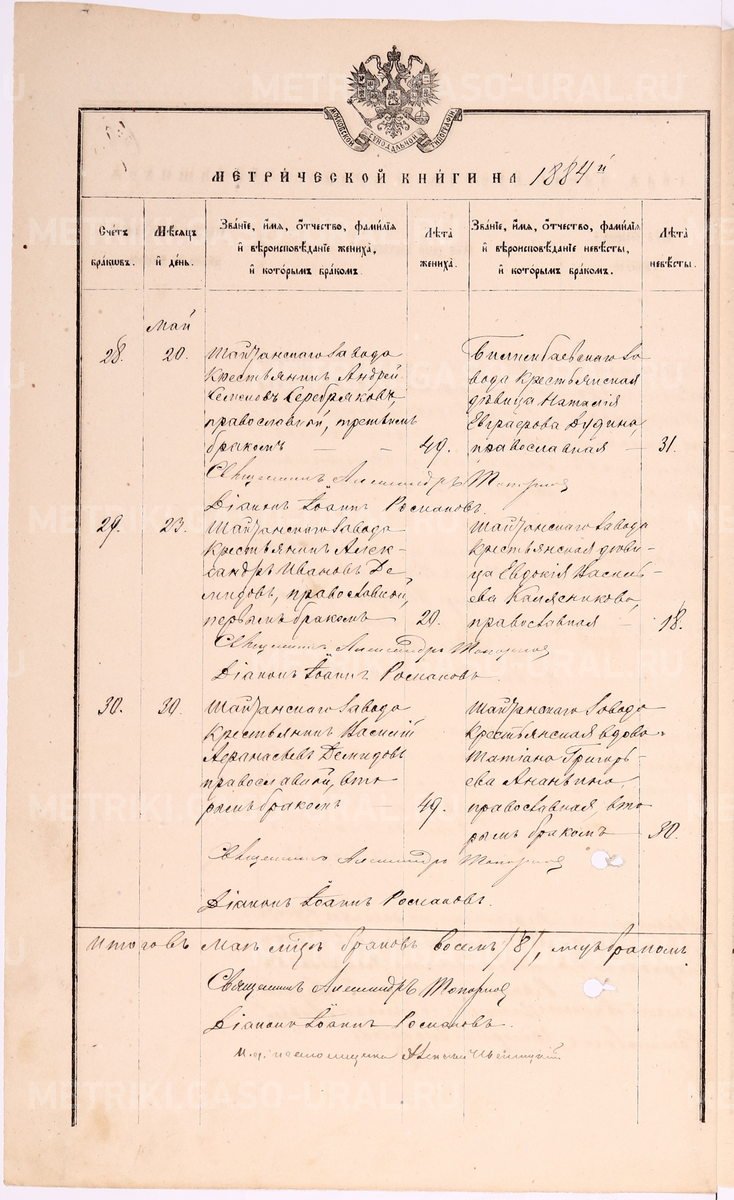 МОСКОВСКОЙ СѴНОДАЛЬНОЙ ТИПОГРАФІИ
МЕТРИЧЕСКОЙ КНИГИ НА 1884й
Счетъ браковъ.
Мѣсяцъ и день.
Званіе, имя, отчество, фамилія и вѣроисповѣданіе жениха, и которымъ бракомъ.
Лѣта жениха.
Званіе, имя, отчество, фамилія и вѣроисповѣданіе невѣсты, и которымъ бракомъ.
Лѣта невѣсты.
Май
28. 20.
Шайтанскаго завода
крестьянинъ Андрей
Семеновъ Серебряковъ,
православный, третьимъ
бракомъ — — 49.
Билимбаевскаго за-
вода крестьянская
дѣвица Наталія
Евграфова Дудина,
православная — 31.
Священникъ Александръ Топорков
Діаконъ Іоаннъ Романовъ.
29. 23.
Шайтанскаго завода
крестьянинъ Алек-
сандръ Ивановъ Де-
мидовъ, православный,
первымъ бракомъ 20.
Шайтанскаго завода
крестьянская дѣви-
ца Евдокія Василь-
ева Колясникова,
православная — 18.
Священникъ Александръ
Діаконъ Іоаннъ Романовъ.
30. 30.
Шайтанскаго завода
крестьянинъ Василій
Афанасьевъ Демидовъ
православный, вто-
рымъ бракомъ — 49.
Шайтанскаго завода
крестьянская вдова
Татіана Григорь-
ева Ананьина,
православная, вто
рымъ бракомъ — 30.
Священникъ Александръ
Діаконъ Іоаннъ Романовъ.
Итого въ мае м-цѣ браковъ восемь /8/,
Священникъ Александръ
Діаконъ Іоаннъ Романовъ.
И. д. псаломщика
METRIKI.GASO-URAL.RU